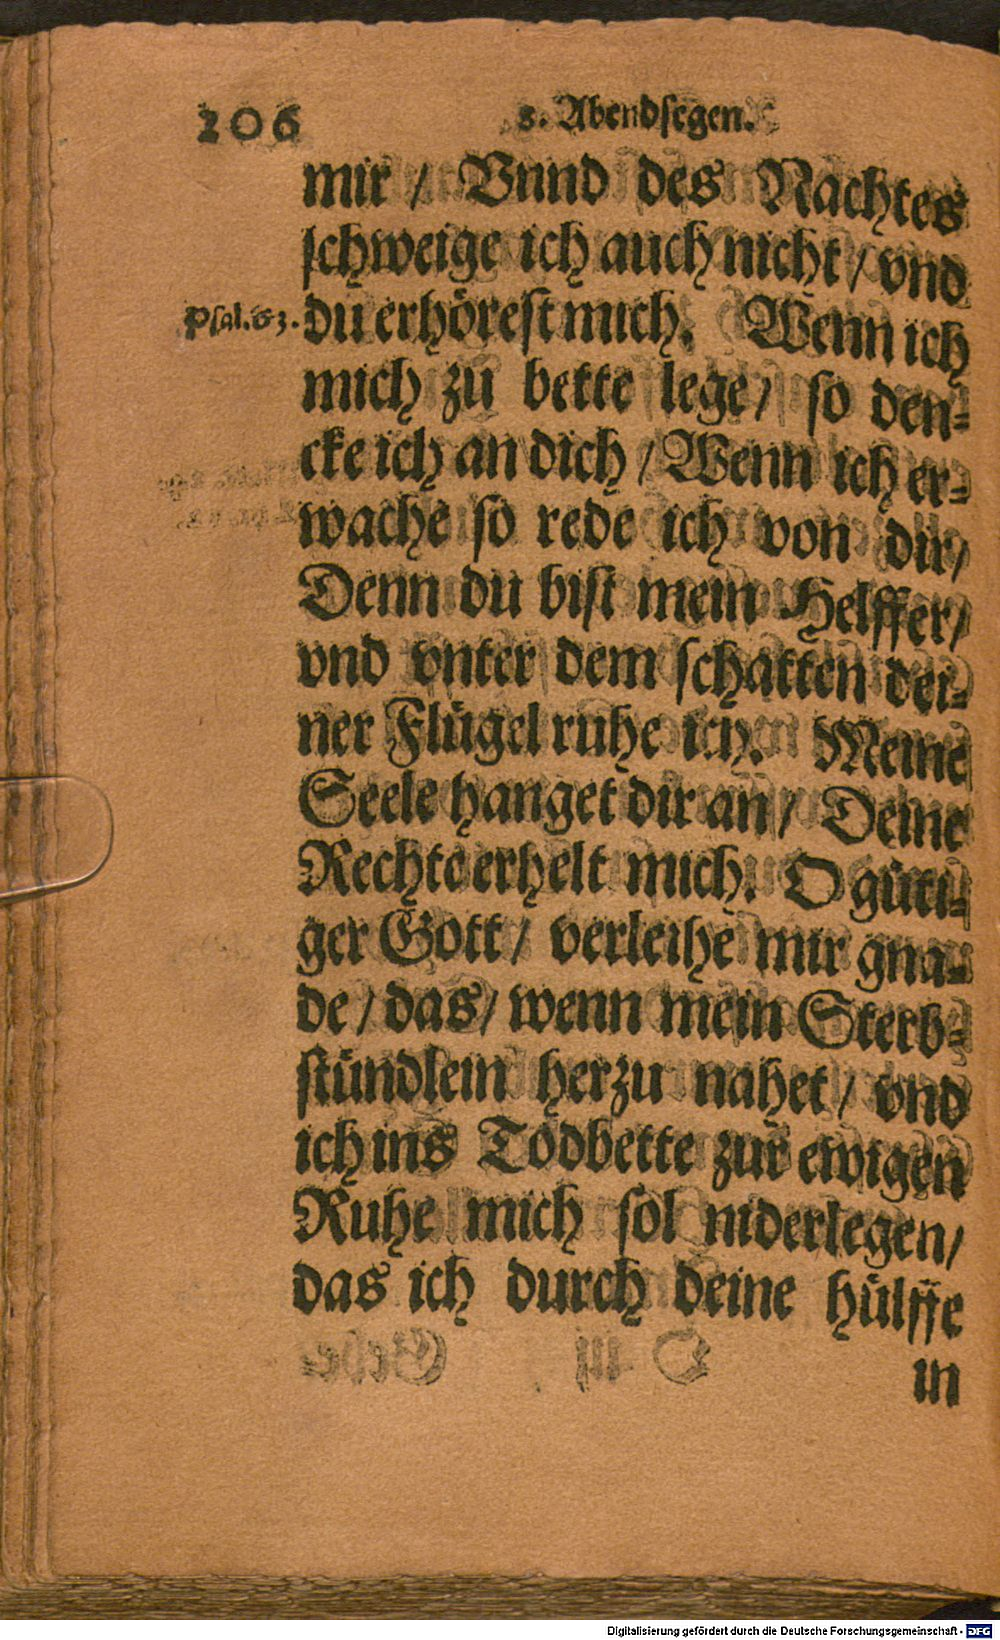 206 8. Abendsegen.
mir / Vnnd des Nachtes
schweige ich auch nicht / vnd
Psal. 63. du erhörest mich. Wenn ich
mich zu bette lege / so den-
cke ich an dich / Wenn ich er-
wache so rede ich von dir /
Denn du bist mein Helffer /
vnd vnter dem schatten dei-
ner Flügel ruhe ich. Meine
Seele hanget dir an / Deine
Rechte erhelt mich. O güti-
ger Gott / verleihe mir gna-
de / das / wenn mein Sterb-
stündlein herzu nahet / vnd
ich ins Todbette zur ewigen
Ruhe mich sol niderlegen /
das ich durch deine hülffe
in
Digitalisierung gefördert durch die Deutsche Forschungsgemeinschaft - DFG